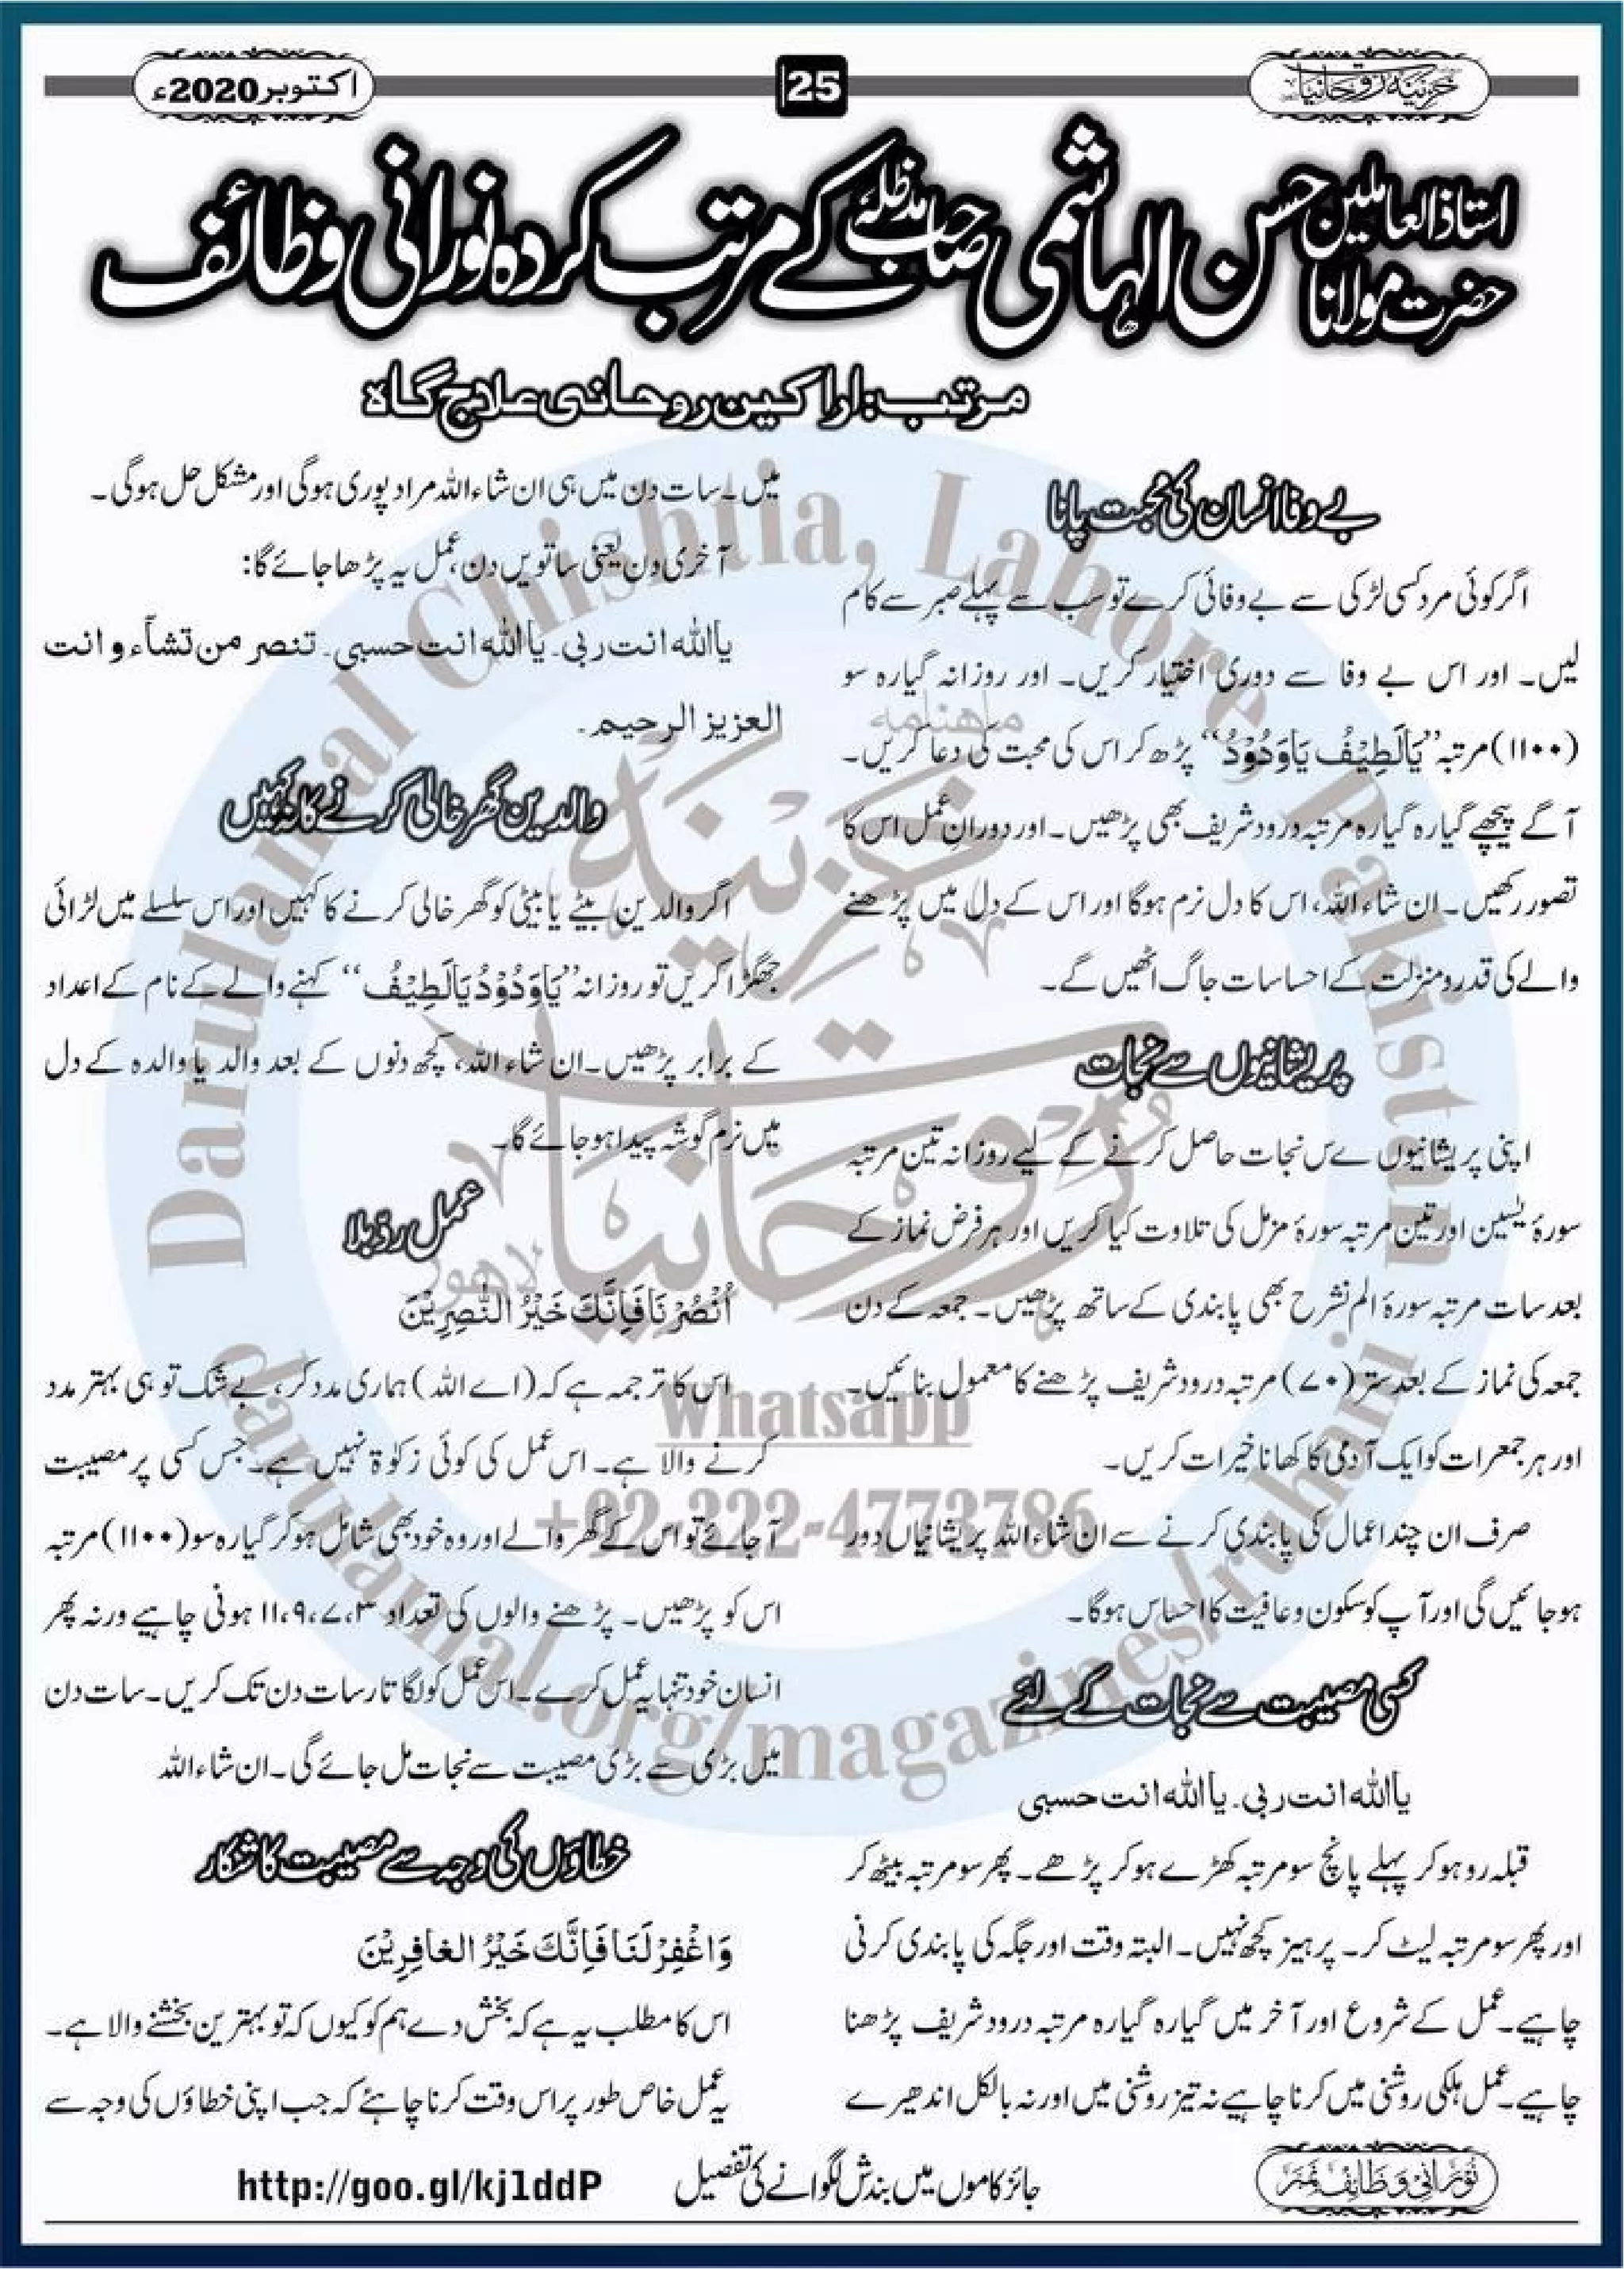 خزینۂ روحانیات
25
اکتوبر 2020ء
استاذ العاملین حضرت مولانا حسن الہاشمی صاحب مدظلہٗ کے مرتب کردہ نورانی وظائف
مرتب: اراکین روحانی علاج گاہ
بے وفا انسان کی محبت پانا
اگر کوئی مرد کسی لڑکی سے بے وفائی کرے تو سب سے پہلے صبر سے کام
لیں۔ اور اس بے وفا سے دوری اختیار کریں۔ اور روزانہ گیارہ سو
(۱۱۰۰) مرتبہ ’’یَالَطِیْفُ یَاوَدُوْدُ‘‘ پڑھ کر اس کی محبت کی دعا کریں۔
آگے پیچھے گیارہ گیارہ مرتبہ درود شریف بھی پڑھیں۔ اور دوران عمل اس کا
تصور رکھیں۔ ان شاء اللہ، اس کا دل نرم ہوگا اور اس کے دل میں پڑھنے
والے کی قدر و منزلت کے احساسات جاگ اٹھیں گے۔
پریشانیوں سے نجات
اپنی پریشانیوں ےس نجات حاصل کرنے کے لیے روزانہ تین مرتبہ
سورۂ یٰسین اور تین مرتبہ سورۂ مزمل کی تلاوت کیا کریں اور ہر فرض نماز کے
بعد سات مرتبہ سورۂ الم نشرح بھی پابندی کے ساتھ پڑھیں۔ جمعہ کے دن
جمعہ کی نماز کے بعد ستر (۷۰) مرتبہ درود شریف پڑھنے کا معمول بنائیں۔
اور ہر جمعرات کو ایک آدمی کا کھانا خیرات کریں۔
صرف ان چند اعمال کی پابندی کرنے سے ان شاء اللہ پریشانیاں دور
ہوجائیں گی اور آپ کو سکون و عافیت کا احساس ہوگا۔
کسی مصیبت سے نجات کے لئے
یااللہ انت ربی۔ یااللہ انت حسبی
قبلہ رو ہوکر پہلے پانچ سو مرتبہ کھڑے ہوکر پڑھے۔ پھر سو مرتبہ بیٹھ کر
اور پھر سو مرتبہ لیٹ کر۔ پرہیز کچھ نہیں۔ البتہ وقت اور جگہ کی پابندی کرنی
چاہیے۔ عمل کے شروع اور آخر میں گیارہ گیارہ مرتبہ درود شریف پڑھنا
چاہیے۔ عمل ہلکی روشنی میں کرنا چاہیے نہ تیز روشنی میں اور نہ بالکل اندھیرے
میں۔ سات دن میں ہی ان شاء اللہ مراد پوری ہوگی اور مشکل حل ہوگی۔
آخری دن یعنی ساتویں دن، عمل یہ پڑھا جائے گا:
یااللہ انت ربی۔ یااللہ انت حسبی۔ تنصر من تشآء و انت
العزیز الرحیم۔
والدین گھر خالی کرنے کا نہ کہیں
اگر والدین بیٹے یا بیٹی کو گھر خالی کرنے کا کہیں اور اس سلسلے میں لڑائی
جھگڑا کریں تو روزانہ ’’یَاوَدُوْدُ یَالَطِیْفُ‘‘ کہنے والے کے نام کے اعداد
کے برابر پڑھیں۔ ان شاء اللہ، کچھ دنوں کے بعد والد یا والدہ کے دل
میں نرم گوشہ پیدا ہوجائے گا۔
عمل ردّ بلا
اُنْصُرْنَا فَاِنَّكَ خَیْرُ النّٰصِرِیْنَ
اس کا ترجمہ ہے کہ (اے اللہ) ہماری مدد کر، بے شک تو ہی بہتر مدد
کرنے والا ہے۔ اس عمل کی کوئی زکوٰۃ نہیں ہے۔ جس کسی پر مصیبت
آجائے تو اس کے گھر والے اور وہ خود بھی شامل ہوکر گیارہ سو (۱۱۰۰) مرتبہ
اس کو پڑھیں۔ پڑھنے والوں کی تعداد ۳، ۷، ۹، ۱۱ ہونی چاہیے ورنہ پھر
انسان خود تنہا یہ عمل کرے۔ اس عمل کو لگاتار سات دن تک کریں۔ سات دن
میں بڑی سے بڑی مصیبت سے نجات مل جائے گی۔ ان شاء اللہ
خطاؤں کی وجہ سے مصیبت کا شکار
وَاغْفِرْلَنَا فَاِنَّكَ خَیْرُ الغافِرِیْنَ
اس کا مطلب یہ ہے کہ بخش دے ہم کو کیوں کہ تو بہترین بخشنے والا ہے۔
یہ عمل خاص طور پر اس وقت کرنا چاہئے کہ جب اپنی خطاؤں کی وجہ سے
نورانی وظائف نمبر
جائز کاموں میں بندش لگوانے کی تفصیل http://goo.gl/kj1ddP
Darulamal Chishtia, Lahore Pakistan
ماہنامہ
خزینۂ
روحانیات
لاہور
Whatsapp
+92-322-4773786
darulamal.org/magazines/ruhani